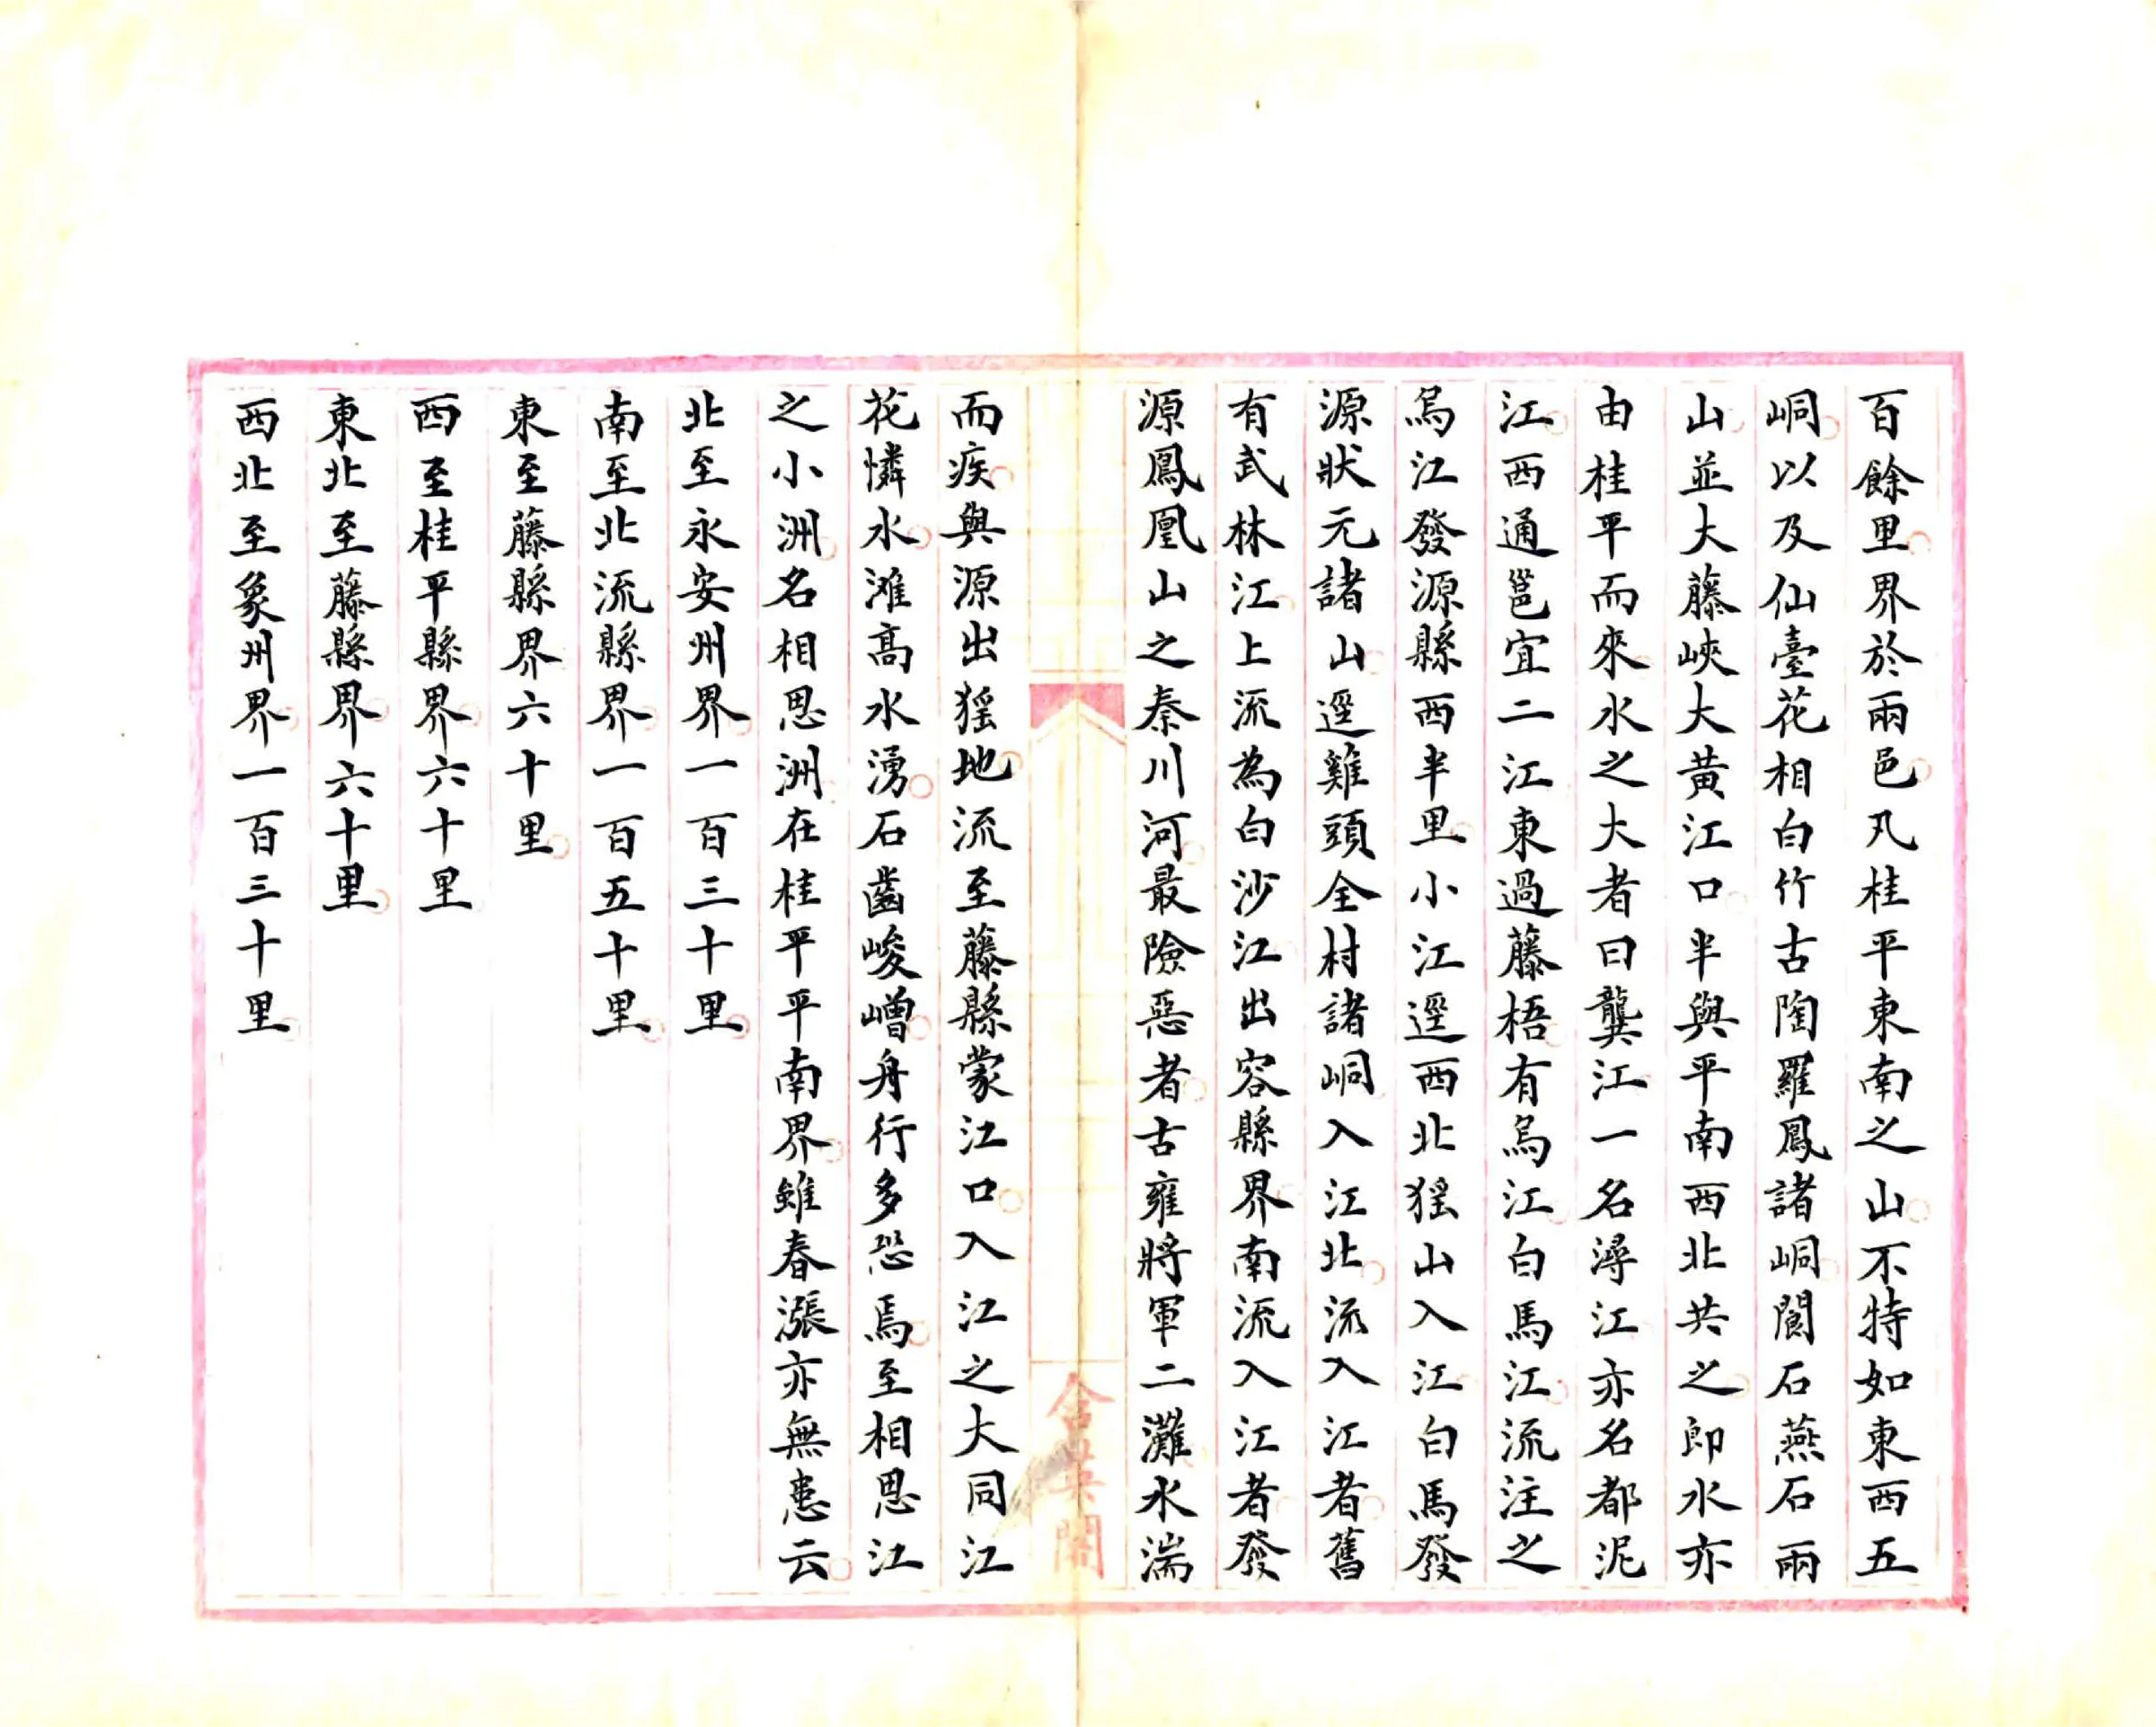 百餘里界於兩邑凡桂平東南之山不特如東西五
峒以及仙臺花相白竹古陶羅鳳諸峒閬石燕石兩
山並大藤峽大黃江口半與平南西北共之即水亦
由桂平而來水之大者曰龔江一名潯江亦名都泥
江西通邕宜二江東過藤梧有烏江白馬江流注之
烏江發源縣西半里小江逕西北猺山入江白馬發
源狀元諸山逕雞頭全村諸峒入江北流入江者舊
有武林江上流為白沙江出容縣界南流入江者發
源鳳凰山之秦川河最險惡者古雍將軍二灘水湍
而疾與源出猺地流至藤縣蒙江口入江之大同江
花憐水滩高水湧石齒峻嶒舟行多恐焉至相思江
之小洲名相思洲在桂平平南界雖春漲亦無患云
北至永安州界一百三十里
南至北流縣界一百五十里
東至藤縣界六十里
西至桂平縣界六十里
東北至藤縣界六十里
西北至象州界一百三十里